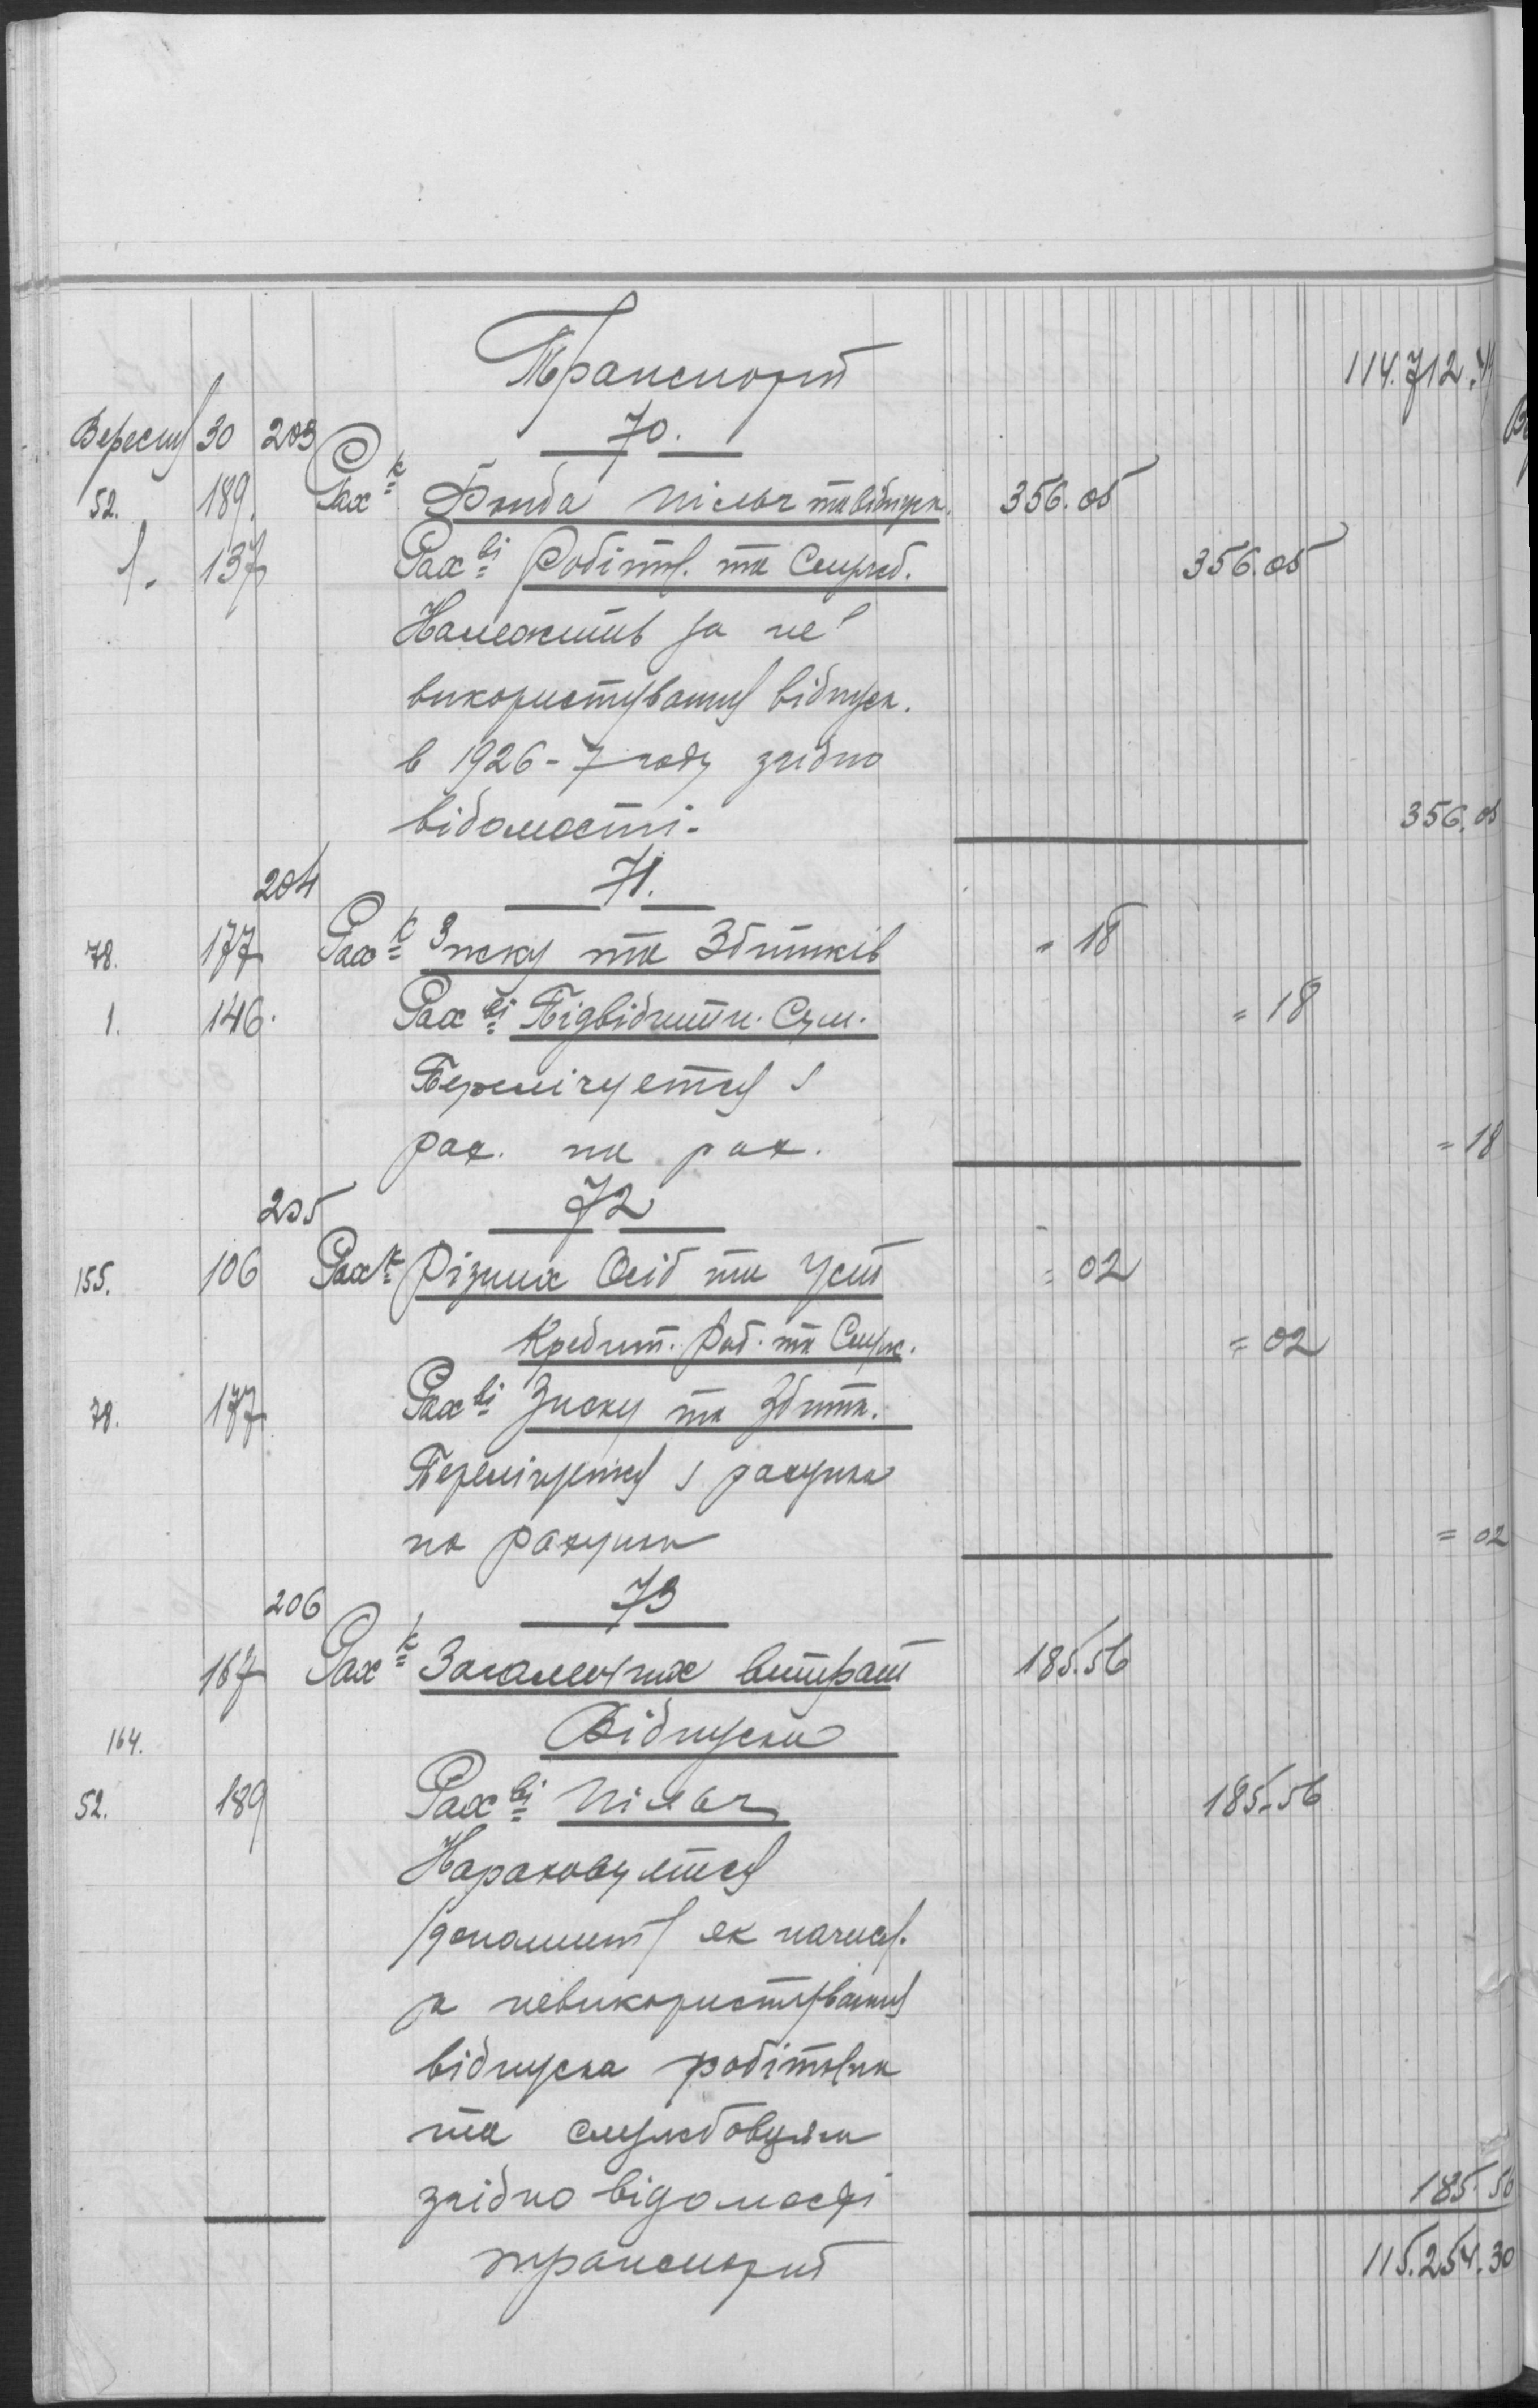 Транспорт 114.712.
Вересня 30 203 70.
52. 189. Рах-к Фонда пільг та відпуск. 356.05
1. 137 Рах-ві Робітн. та Службов. 356.05
Належить за не
використування відпуск.
в 1926-7 году згідно
відомости. 356.05
204 71.
78. 177 Рах-к Зиску та Збитків = 18
1. 146. Рах-ві Підвідчитн. Сум. = 18
Перелічується з
рах. на рах. = 18
205 72
155. 106 Рах-к Різних Осіб та Уст = 02
Кредит. Роб. та Служ. = 02
78. 177 Рах-ві Зиску та Збитк.
Перелічується з рахунка
на рахунок = 02
206 73
167 Рах-к Загальних витрат 185.56
164. Відпуски
52. 189 Рах-ві пільг 185.56
Нараховується
як начисл.
за невикористування
відпуска робітника
та службовця
згідно відомості 185.56
транспорт 115.254.30